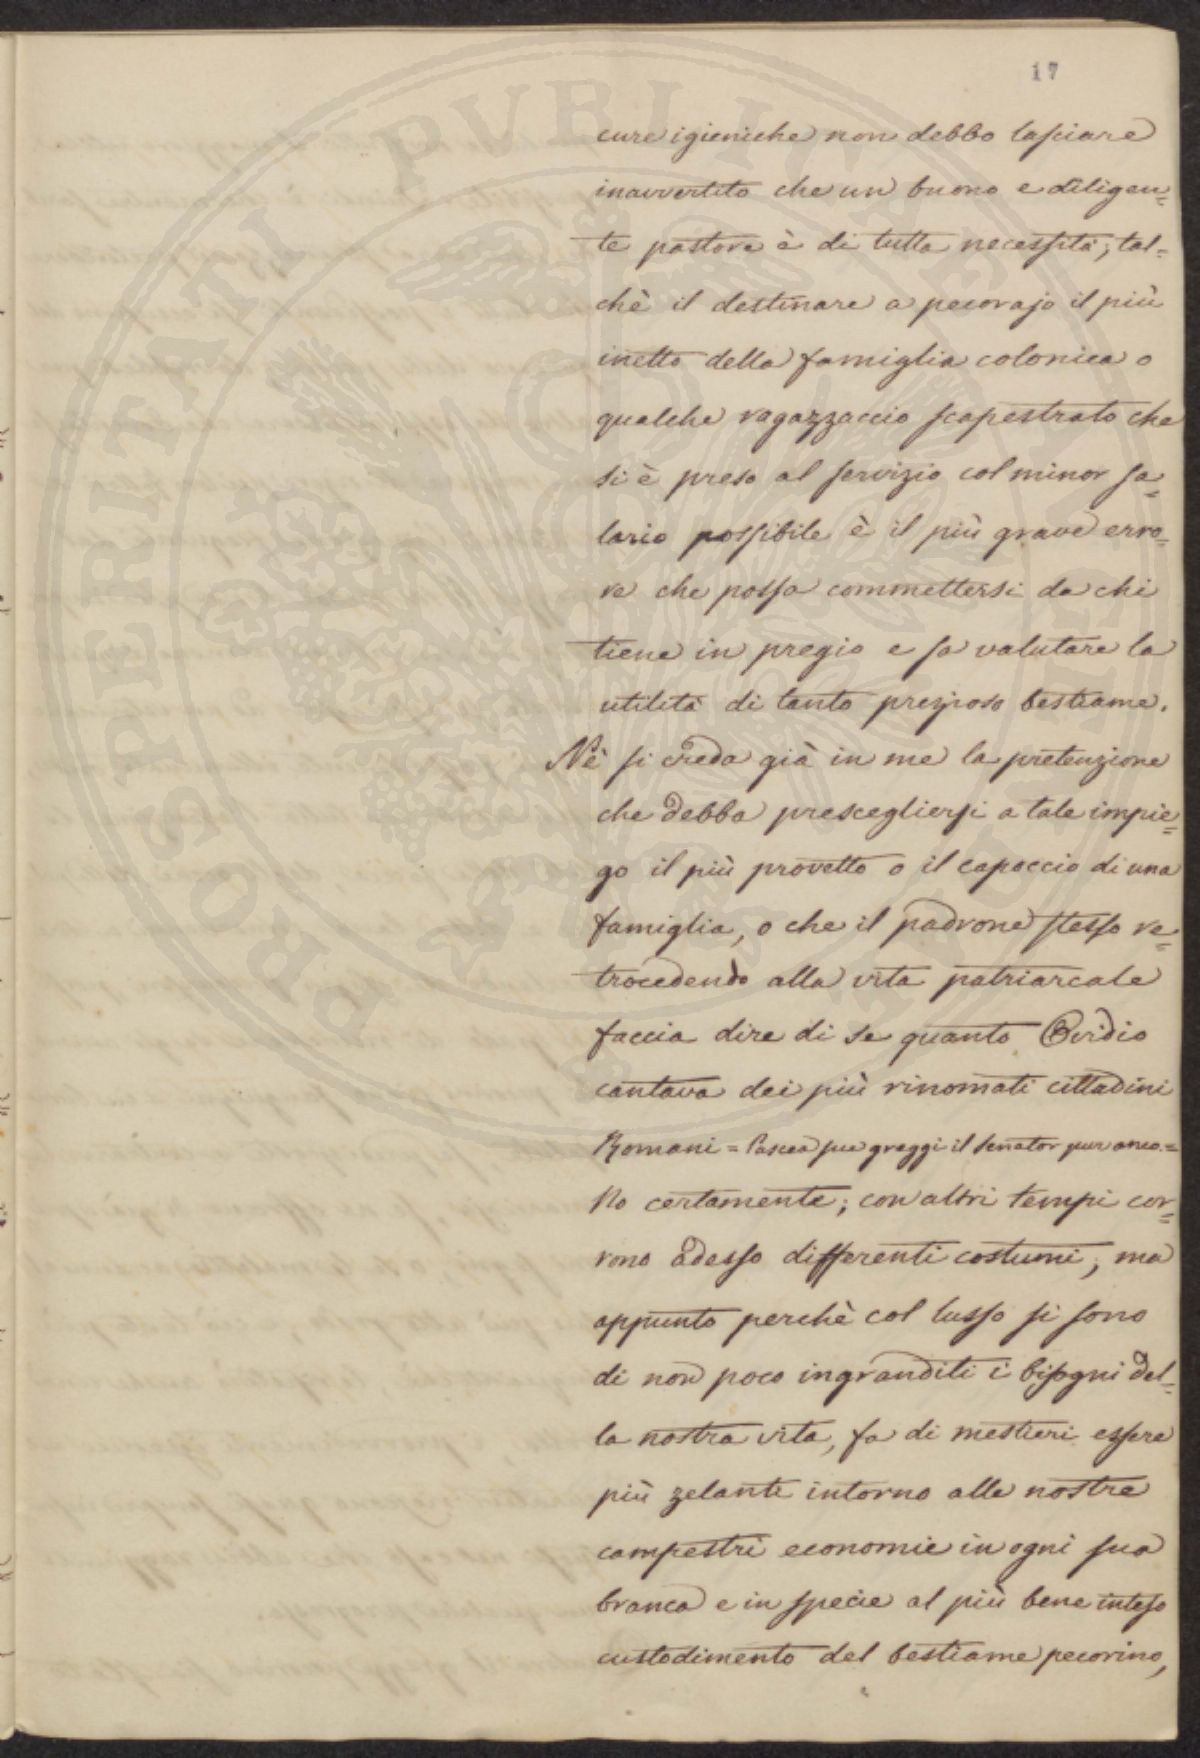 17
cure igieniche non debbo lasciare
inavvertito che un buono e diligen=
te pastore è di tutta necessità; tal=
chè il destinare a pecorajo il più
inetto della famiglia colonica o
qualche ragazzaccio scapestrato che
si è preso al servizio col minor sa=
lario possibile è il più grave erro=
re che possa commettersi da chi
tiene in pregio e sa valutare la
utilità di tanto prezioso bestiame.
Nè si creda già in me la pretenzione
che debba prescegliersi a tale impie=
go il più provetto o il capoccio di una
famiglia, o che il padrone stesso re=
trocedendo alla vita patriarcale
faccia dire di se quanto Ovidio
cantava dei più rinomati cittadini
Romani = Pascea sue greggi il Senator pur anco =
No certamente; con altri tempi cor=
rono adesso differenti costumi; ma
appunto perchè col lusso si sono
di non poco ingranditi i bisogni del=
la nostra vita, fa di mestieri essere
più zelanti intorno alle nostre
campestri economie in ogni sua
branca e in specie al più bene inteso
custodimento del bestiame pecorino,
PROSPERITATI PVBLICAE AVGENDAE